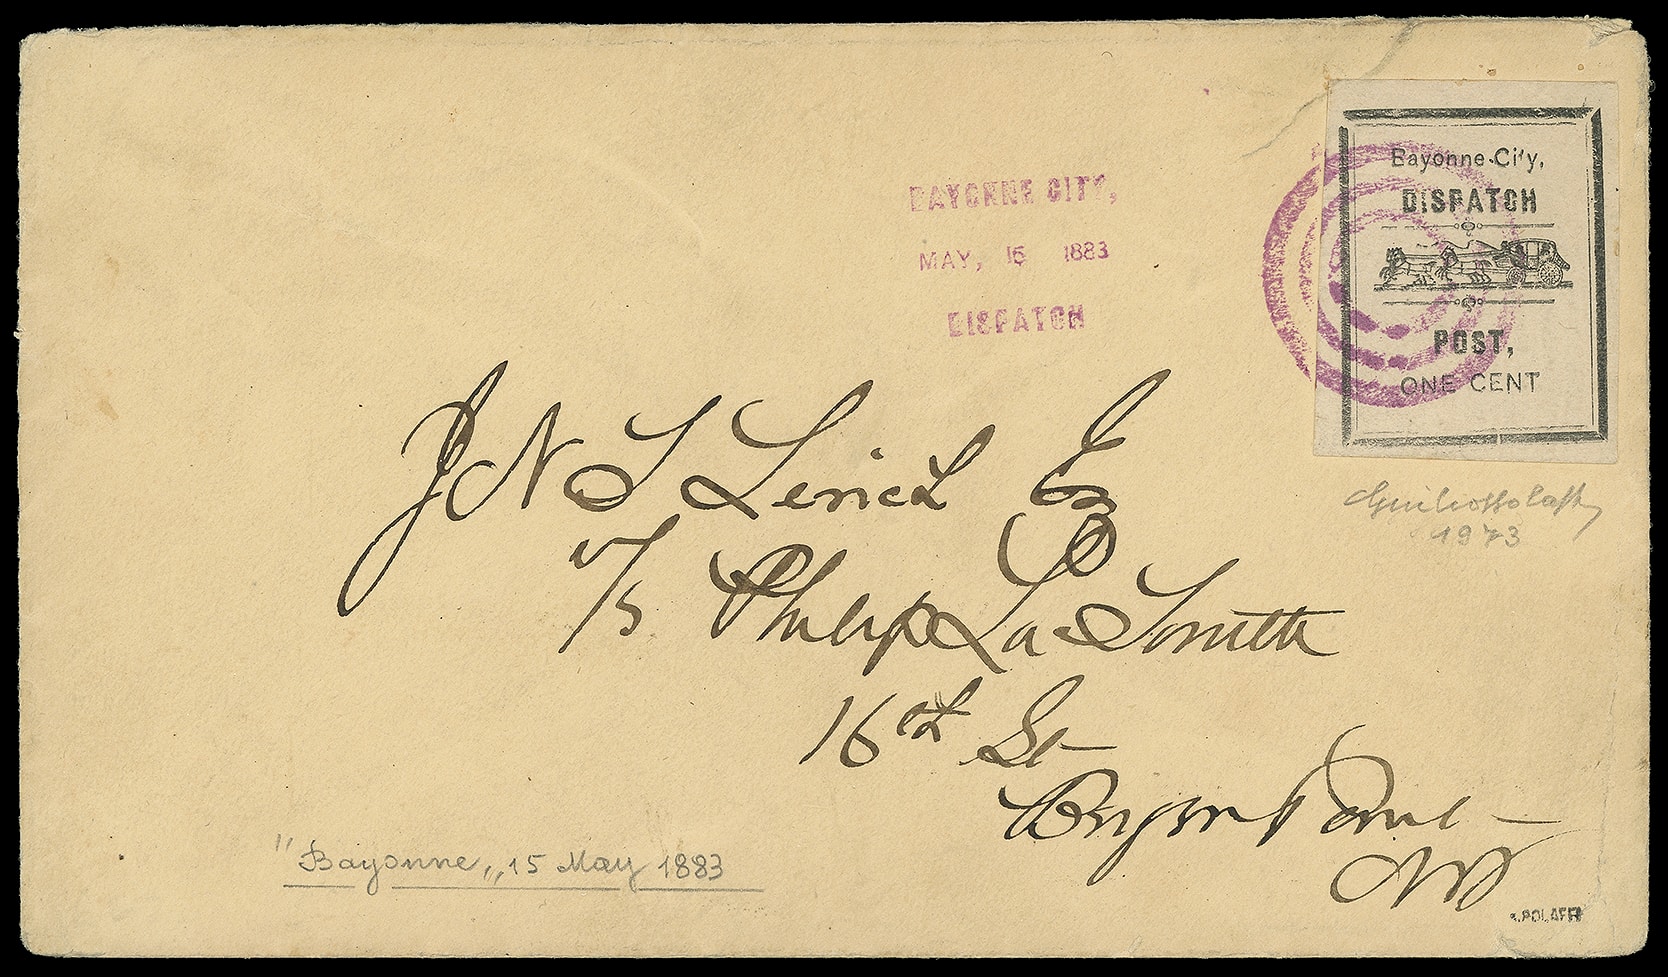 BAYONNE CITY,
MAY, 15 1883
DISPATCH
Bayonne City,
DISPATCH
POST,
ONE CENT
1973
JNS Lerick
c/o Philip La Tourette
16th St
Bergen Point
NJ
"Bayonne„ 15 May 1883